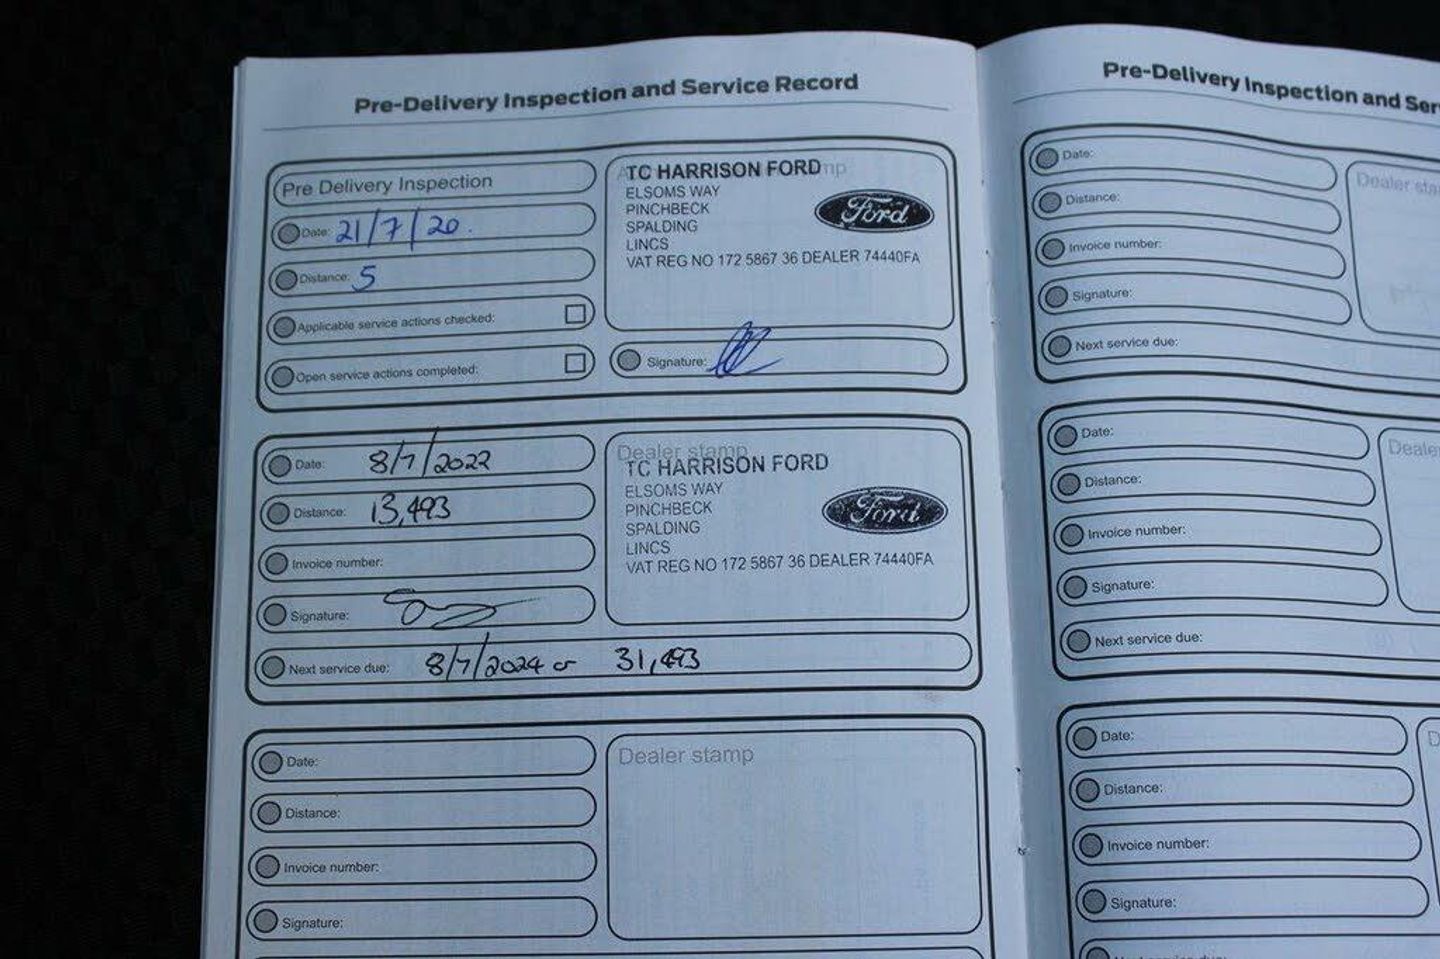 Pre-Delivery Inspection and Service Record
Pre Delivery Inspection
Date: 21/7/20.
Distance: 5
Applicable service actions checked:
Open service actions completed:
TC HARRISON FORD
ELSOMS WAY
PINCHBECK
SPALDING
LINCS
VAT REG NO 172 5867 36 DEALER 74440FA
Ford
Signature:
Date: 8/7/2022
Distance: 13,493
Invoice number:
Signature:
Next service due: 8/7/2024 or 31,493
Dealer stamp
TC HARRISON FORD
ELSOMS WAY
PINCHBECK
SPALDING
LINCS
VAT REG NO 172 5867 36 DEALER 74440FA
Ford
Date:
Distance:
Invoice number:
Signature:
Dealer stamp
Pre-Delivery Inspection and Ser
Date:
Distance:
Invoice number:
Signature:
Next service due:
Dealer sta
Date:
Distance:
Invoice number:
Signature:
Next service due:
Deale
Date:
Distance:
Invoice number:
Signature:
D